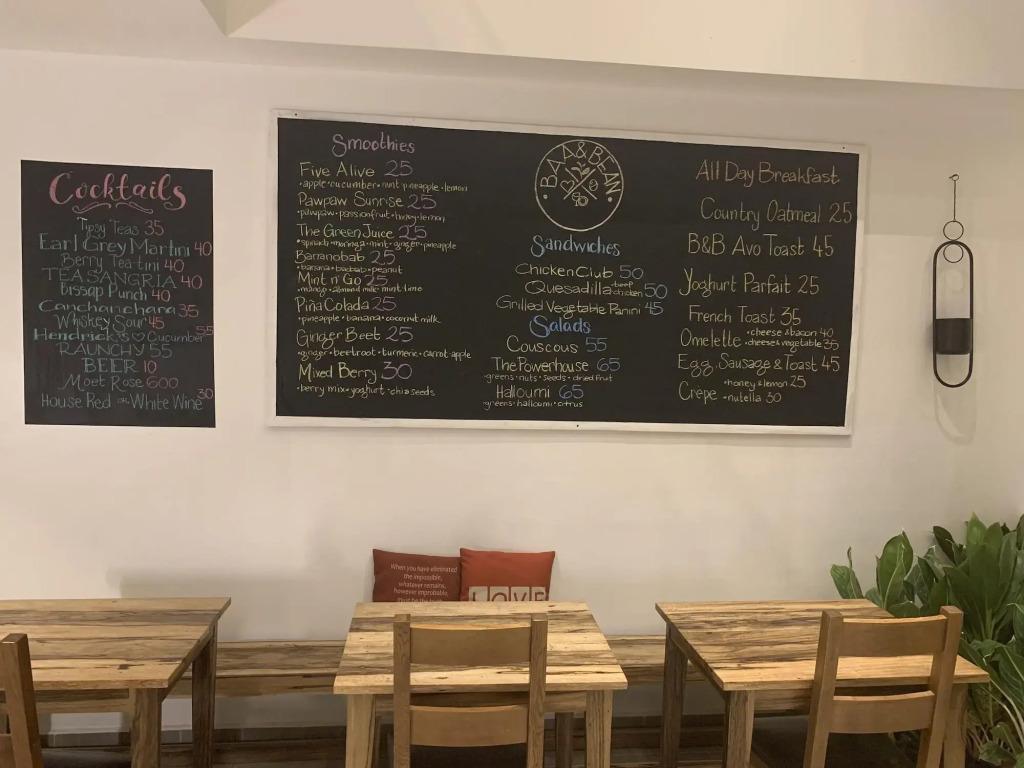 Cocktails
Tipsy Teas 35
Earl Grey Martini 40
Berry Tea-tini 40
TEA SANGRIA 40
Bissap Punch 40
Canchanchara 35
Whiskey Sour 45
Hendrick's ♡ Cucumber 55
RAUNCHY 55
BEER 10
Moet Rose 600
House Red or White Wine 30
Smoothies
Five Alive 25
•apple•cucumber•mint•pineapple•lemon
Pawpaw Sunrise 25
•pawpaw•passionfruit•honey•lemon
The Green Juice 25
•spinach•moringa•mint•ginger•pineapple
Bananobab 25
•banana•baobab•peanut
Mint n' Go 25
•mango•almond milk•mint•lime
Piña Colada 25
•pineapple•banana•coconut milk
Ginger Beet 25
•ginger•beetroot•turmeric•carrot•apple
Mixed Berry 30
•berry mix•yoghurt•chia seeds
BAA&BEAN
Sandwiches
Chicken Club 50
Quesadilla •beef •chicken 50
Grilled Vegetable Panini 45
Salads
Couscous 55
The Powerhouse 65
•greens•nuts•seeds•dried fruit
Halloumi 65
•greens•halloumi•citrus
All Day Breakfast
Country Oatmeal 25
B&B Avo Toast 45
Yoghurt Parfait 25
French Toast 35
Omelette •cheese & bacon 40
•cheese & vegetable 35
Egg, Sausage & Toast 45
Crepe •honey & lemon 25
•nutella 30
When you have eliminated
the impossible,
whatever remains,
however improbable,
must be the truth
LOVE